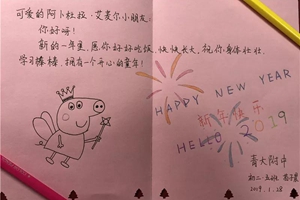 可爱的阿卜杜拉·艾麦尔小朋友：
你好呀！
新的一年里，愿你好好吃饭，快快长大，祝你身体壮壮，
学习棒棒，拥有一个开心的童年！
HAPPY NEW YEAR
新年快乐
HELLO 2019
青大附中
初二·五班
2019.1.28